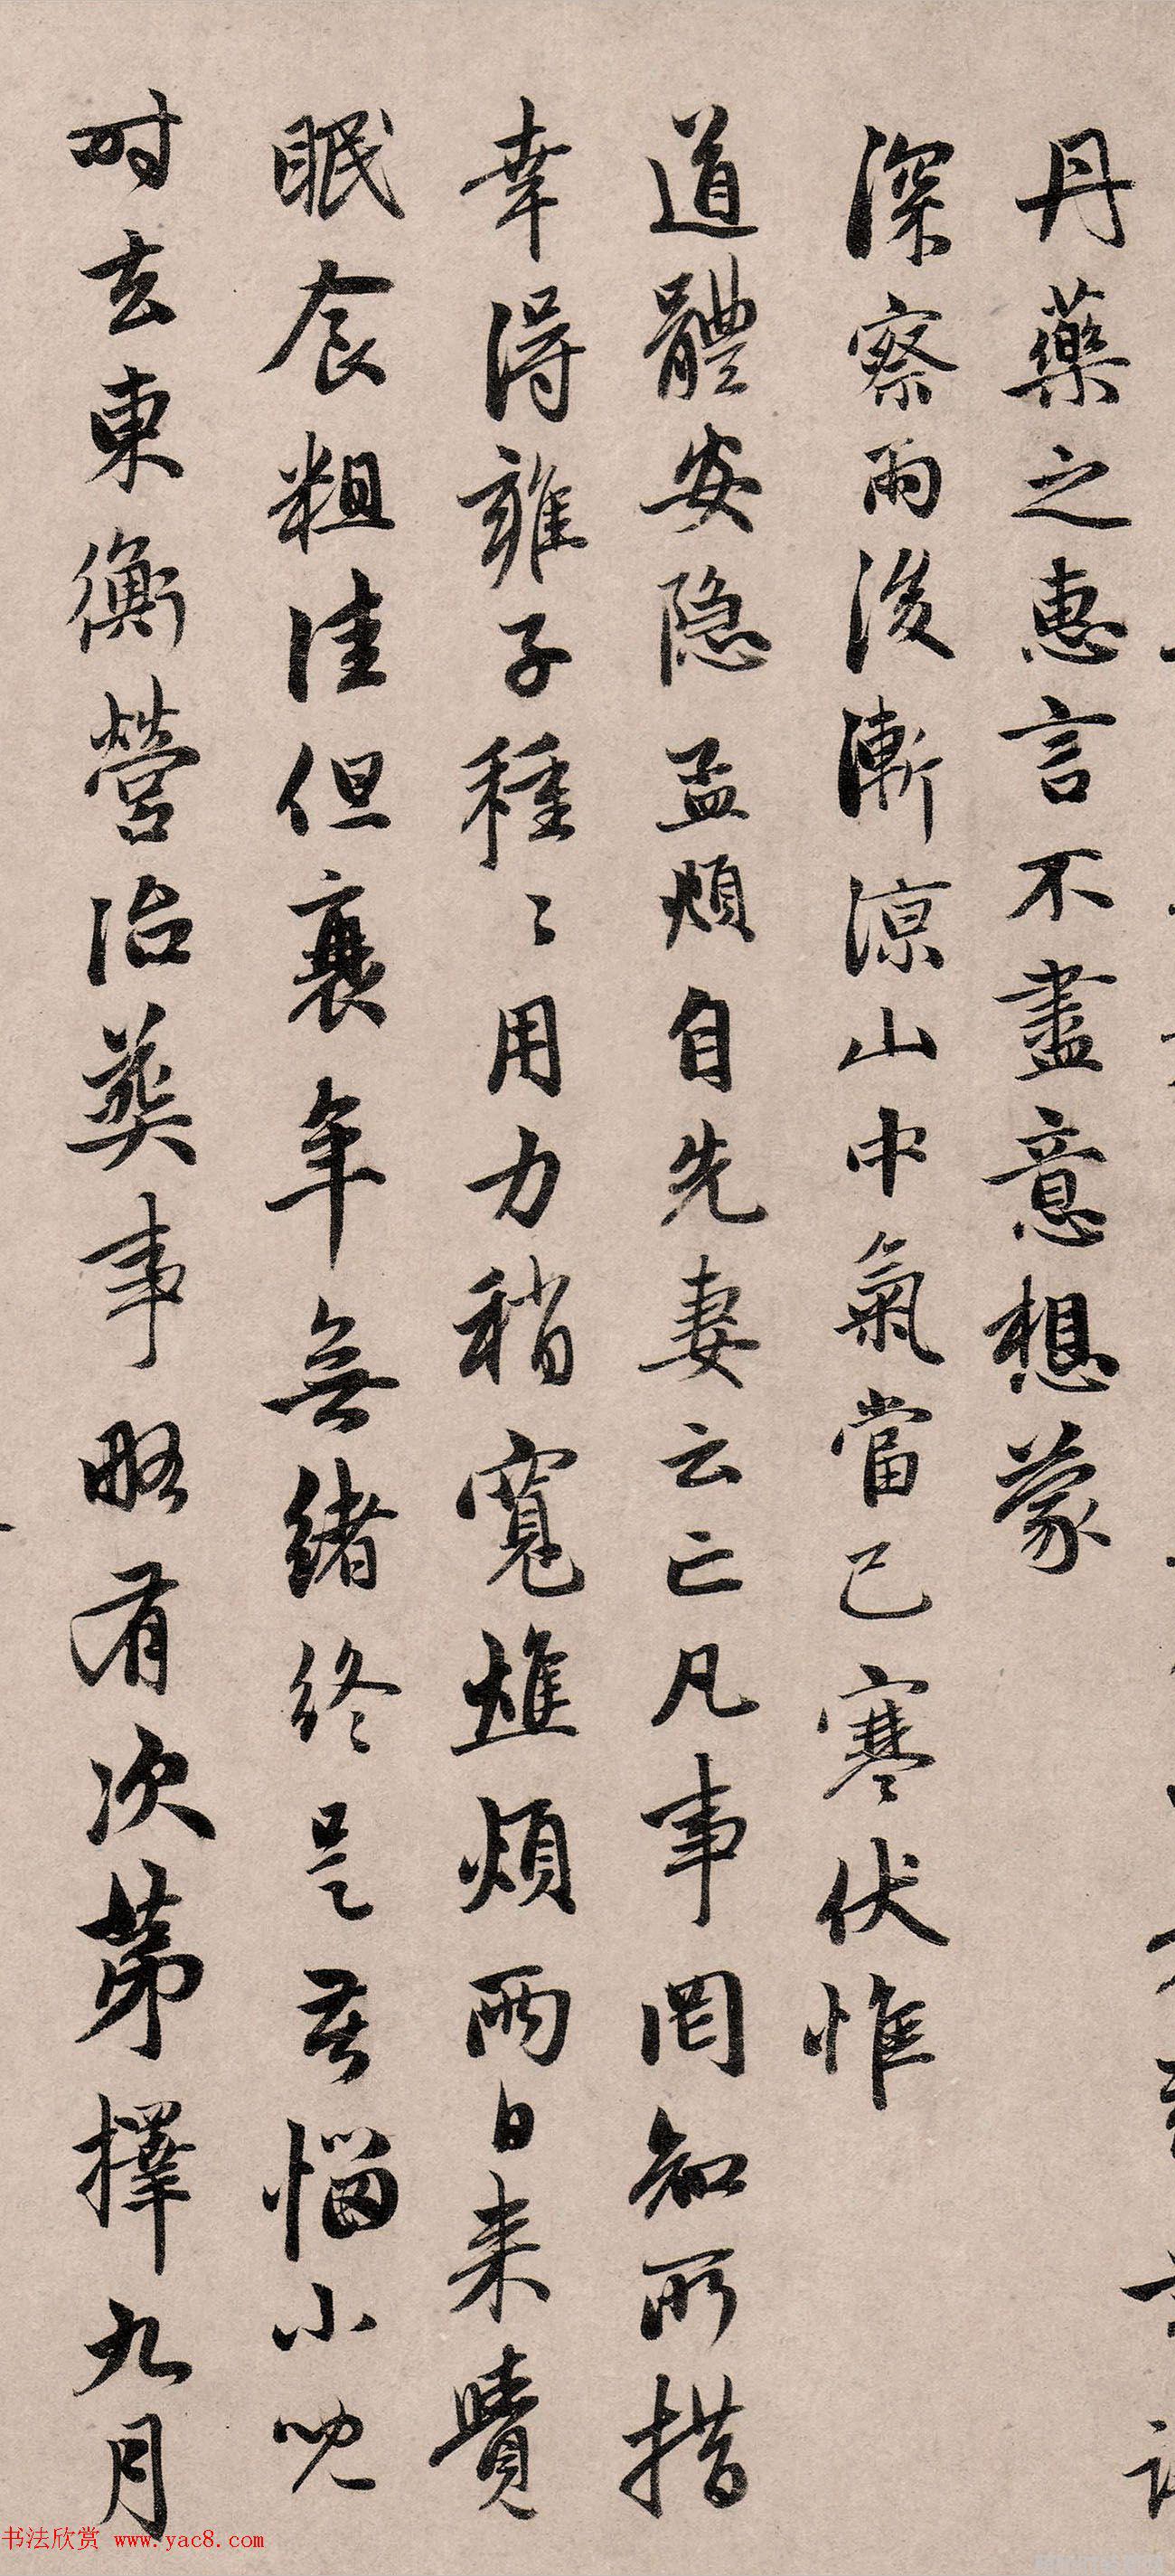 丹藥之惠言不盡意想蒙
深察雨後漸涼山中氣當已寒伏惟
道體安隱孟頫自先妻云亡凡事罔知所措
幸得雍子種〻用力稍寬憔煩兩日來覺
眠食粗佳但衰年無緒終是苦惱小兒
时去東衡營治葬事略有次第擇九月
书法欣赏 www.yac8.com